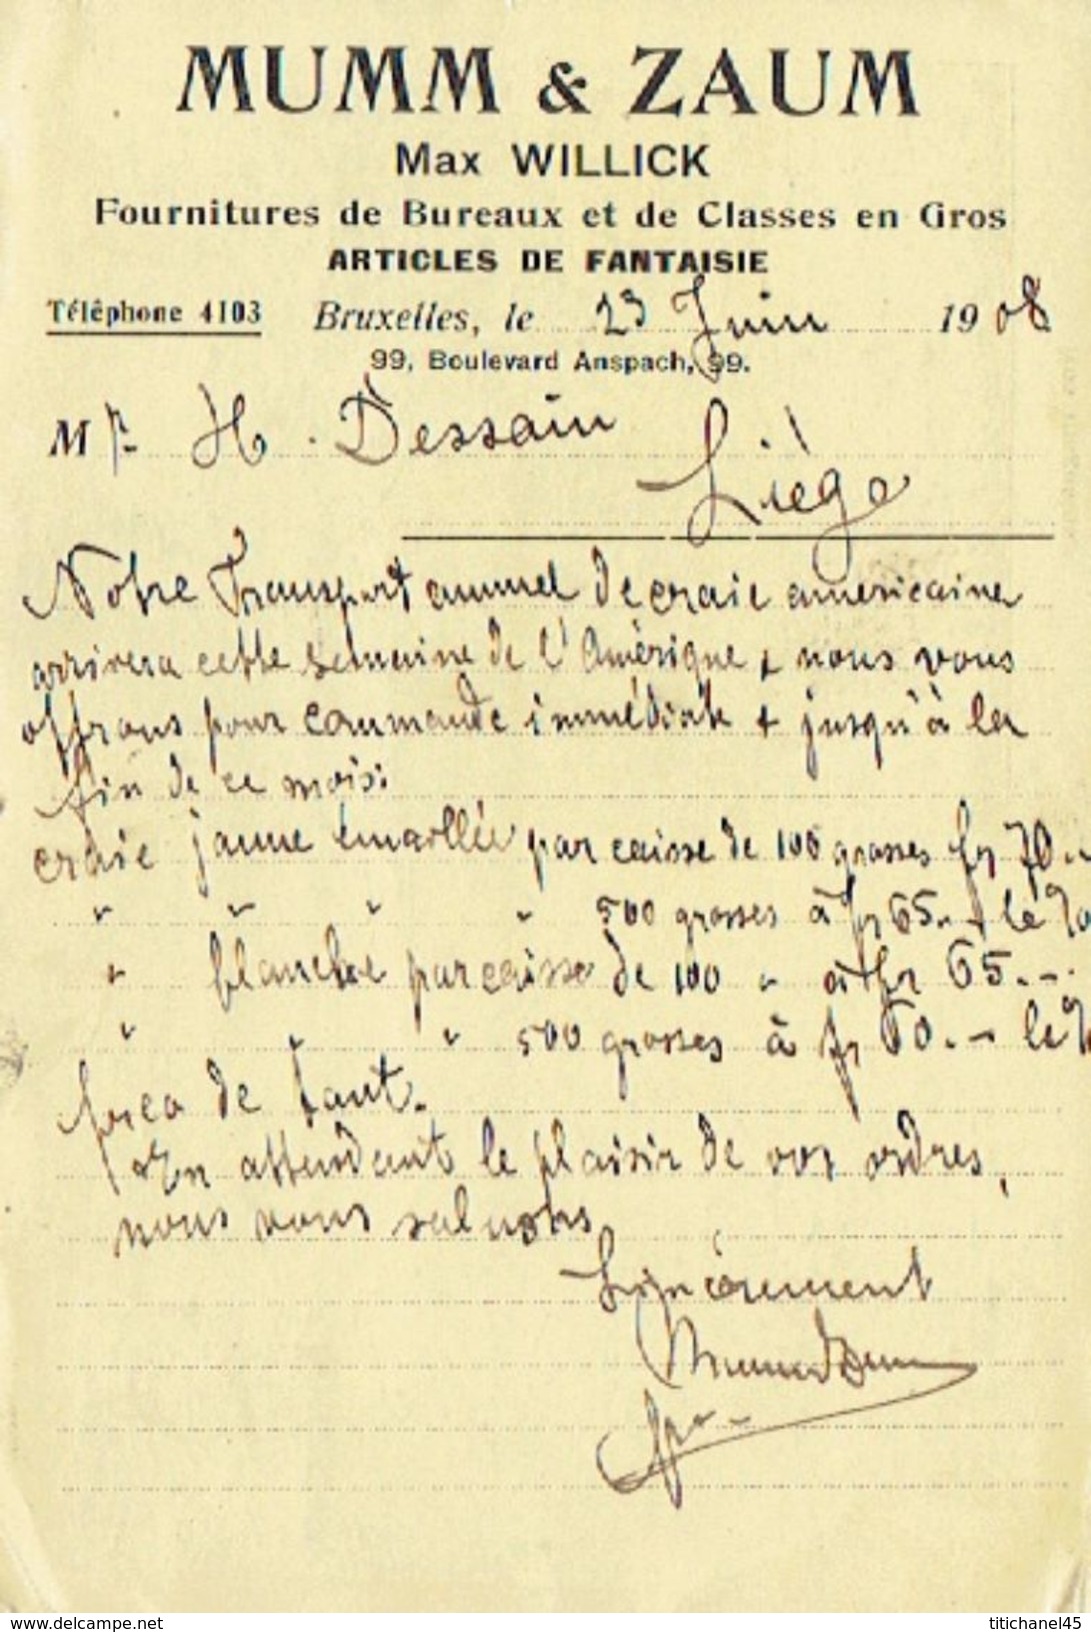 MUMM & ZAUM
Max WILLICK
Fournitures de Bureaux et de Classes en Gros
ARTICLES DE FANTAISIE
Téléphone 4103 Bruxelles, le 23 Juin 1908
99, Boulevard Anspach, 99.
Mr H. Dessain
Liège
Notre Transport annuel de craie americaine
arrivera cette semaine de l'Amérique + nous vous
offrons pour commande immédiate + jusqu'à la
fin de ce mois:
craie jaune émaillée par caisse de 100 grosses fr 70.-
" " " " 500 grosses à fr 65.- le %
" blanche par caisse de 100 " à fr 65.-
" " " 500 grosses à fr 60.- le %
frco de tout.
En attendant le plaisir de vos ordres,
nous vous saluons
Sincèrement
Mumm & Zaum
delcampe.net
titichanel45